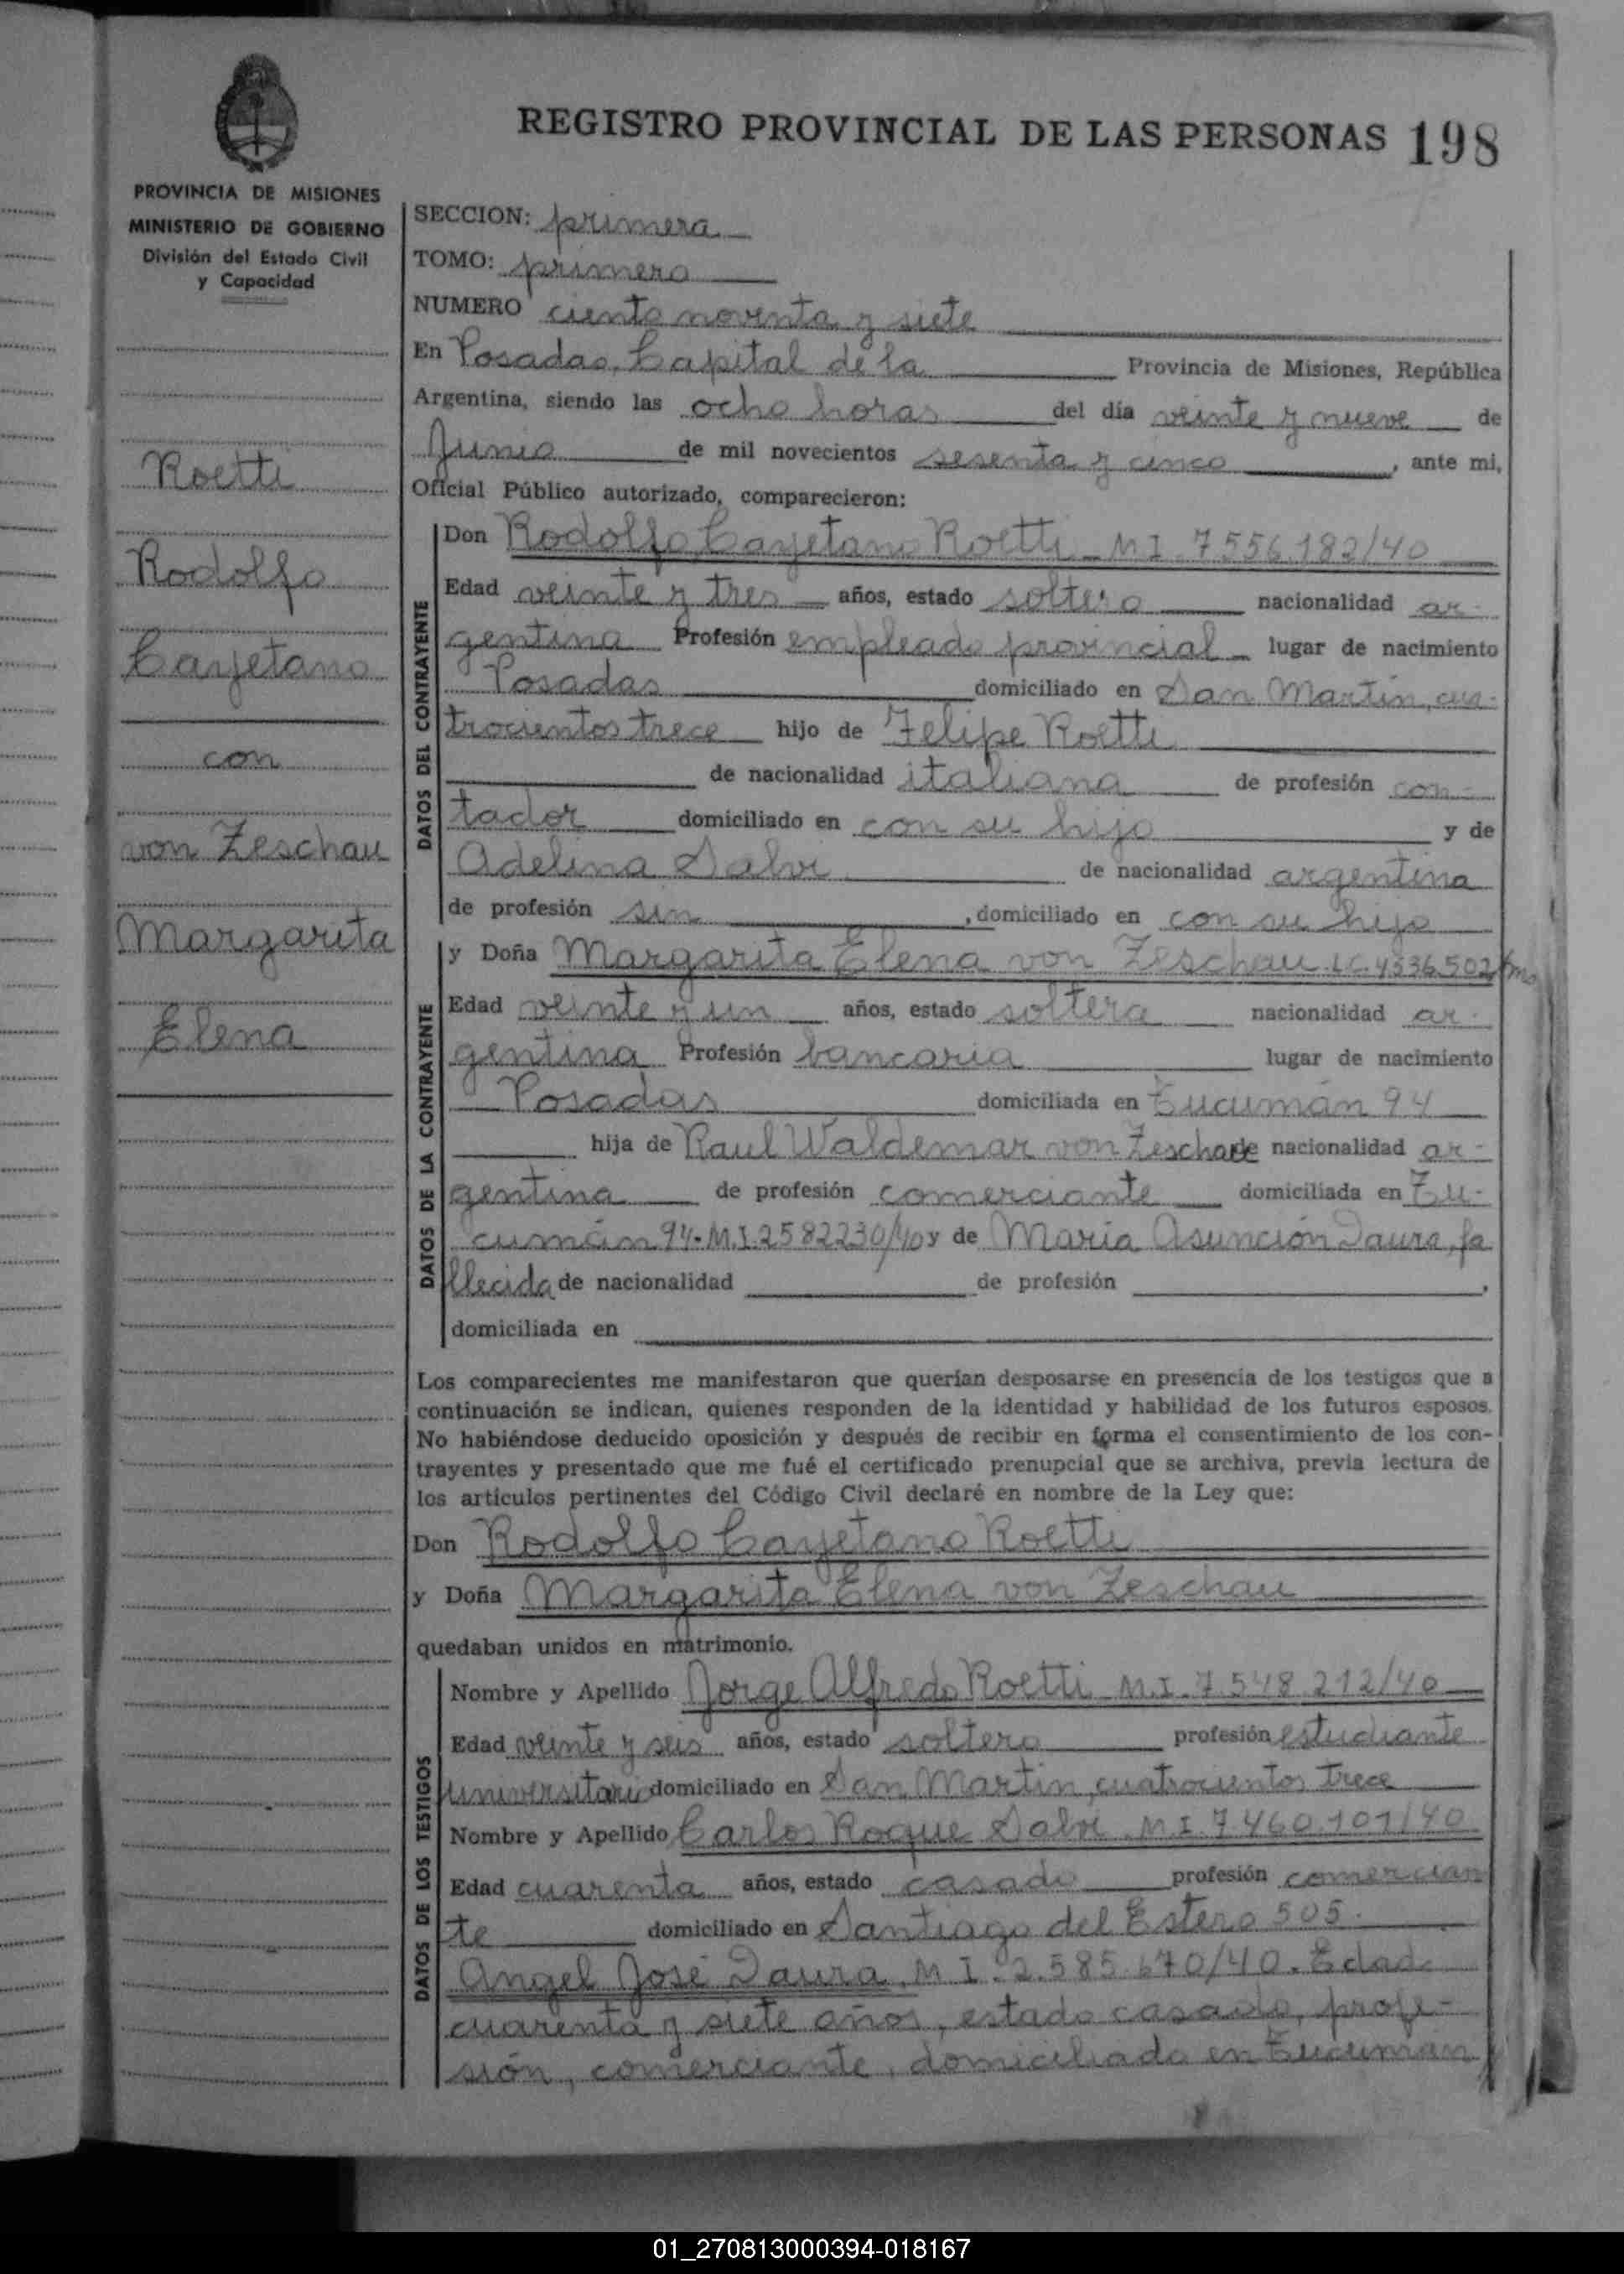 REGISTRO PROVINCIAL DE LAS PERSONAS 198
PROVINCIA DE MISIONES
MINISTERIO DE GOBIERNO
División del Estado Civil
y Capacidad
Roetti
Rodolfo
Cayetano
con
von Zeschau
Margarita
Elena
SECCION: primera
TOMO: primero
NUMERO ciento noventa y siete
En Posadas, Capital de la Provincia de Misiones, República
Argentina, siendo las ocho horas del día veinte y nueve de
Junio de mil novecientos sesenta y cinco, ante mi,
Oficial Público autorizado, comparecieron:
DATOS DEL CONTRAYENTE
Don Rodolfo Cayetano Roetti - M I. 7.556.182/40
Edad veinte y tres años, estado soltero nacionalidad ar-
gentina Profesión empleado provincial lugar de nacimiento
Posadas domiciliado en San Martín, cua-
trocientos trece hijo de Felipe Roetti
de nacionalidad italiana de profesión con-
tador domiciliado en con su hijo y de
Adelina Salvi de nacionalidad argentina
de profesión sin, domiciliado en con su hijo
DATOS DE LA CONTRAYENTE
y Doña Margarita Elena von Zeschau L.C. 4.336.502
Edad veinte y un años, estado soltera nacionalidad ar-
gentina Profesión bancaria lugar de nacimiento
Posadas domiciliada en Tucumán 94
hija de Raul Waldemar von Zeschau de nacionalidad ar-
gentina de profesión comerciante domiciliada en Tu-
cumán 94. M.I. 2582230/40 y de María Asunción Daura, fa
llecida de nacionalidad de profesión ,
domiciliada en
Los comparecientes me manifestaron que querían desposarse en presencia de los testigos que a
continuación se indican, quienes responden de la identidad y habilidad de los futuros esposos.
No habiéndose deducido oposición y después de recibir en forma el consentimiento de los con-
trayentes y presentado que me fué el certificado prenupcial que se archiva, previa lectura de
los artículos pertinentes del Código Civil declaré en nombre de la Ley que:
Don Rodolfo Cayetano Roetti
y Doña Margarita Elena von Zeschau
quedaban unidos en matrimonio.
DATOS DE LOS TESTIGOS
Nombre y Apellido Jorge Alfredo Roetti M.I. 7.548.212/40
Edad veinte y seis años, estado soltero profesión estudiante
universitario domiciliado en San Martín, cuatrocientos trece
Nombre y Apellido Carlos Roque Salvi M.I. 7.460.101/40
Edad cuarenta años, estado casado profesión comercian
te domiciliado en Santiago del Estero 505.
Angel José Daura. M I. 2.585.670/40. Edad
cuarenta y siete años, estado casado, profe-
sión, comerciante, domiciliado en Tucumán
01_270813000394-018167